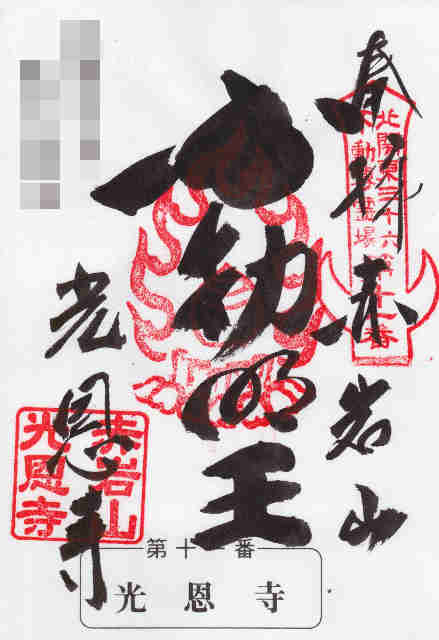 奉拝 赤岩山
北関東三十六
不動尊霊場
第十一番
不動明王
光恩寺
赤岩山
光恩寺
第十一番
光恩寺